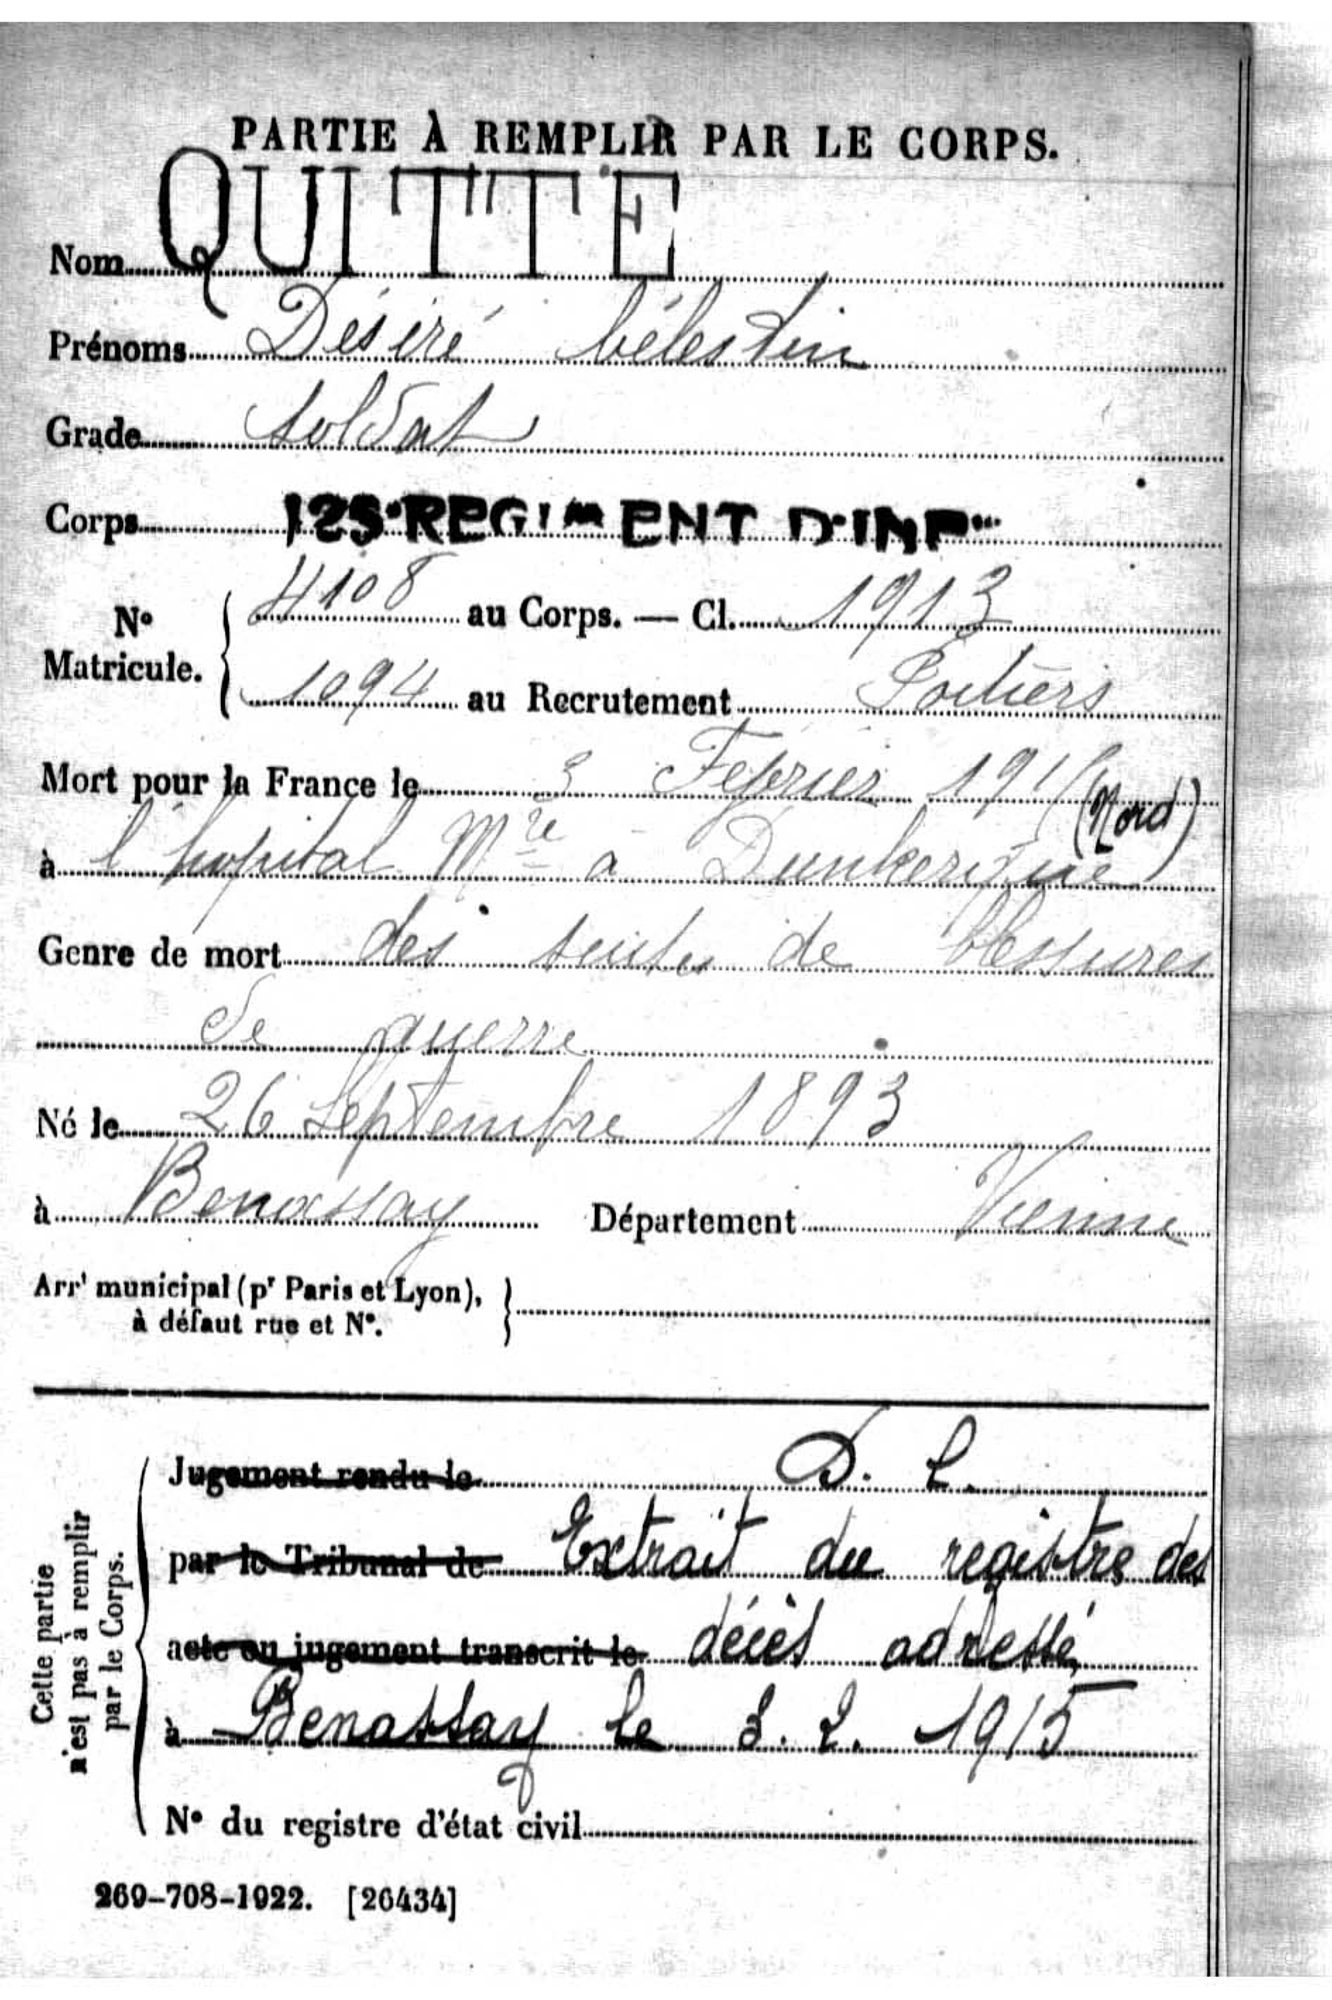 PARTIE À REMPLIR PAR LE CORPS.
Nom QUITTE
Prénoms Désiré Célestin
Grade soldat
Corps 125e REGIMENT D'INFie
No Matricule. { 4108 au Corps. — Cl. 1913
1094 au Recrutement Poitiers
Mort pour la France le 3 Février 191
(Nord)
à l'hopital Mre a Dunkerque
Genre de mort des suites de blessures
de guerre
Né le 26 Septembre 1893
à Benassay Département Vienne
Arrt municipal (pr Paris et Lyon), }
à défaut rue et No.
Cette partie
n'est pas à remplir
par le Corps.
Jugement rendu le D. L.
par le Tribunal de Extrait du registre des
acte ou jugement transcrit le décès adressé
à Benassay le 3. 2. 1915
No du registre d'état civil
269-708-1922. [26434]